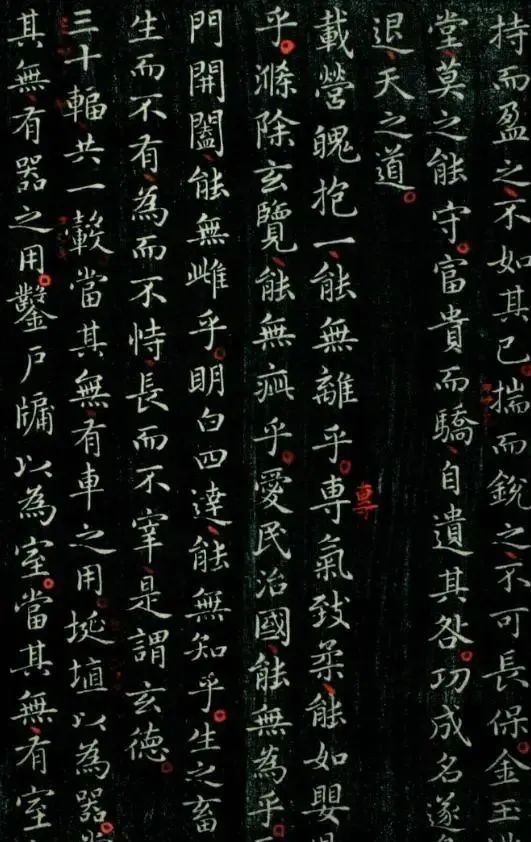 持而盈之不如其已揣而銳之不可長保金玉滿
堂莫之能守富貴而驕自遺其咎功成名遂身
退天之道
載營魄抱一能無離乎專氣致柔能如嬰兒
乎滌除玄覽能無疵乎愛民治國能無為乎天
門開闔能無雌乎明白四達能無知乎生之畜
生而不有為而不恃長而不宰是謂玄德
三十輻共一轂當其無有車之用埏埴以為器當
其無有器之用鑿戶牖以為室當其無有室
專